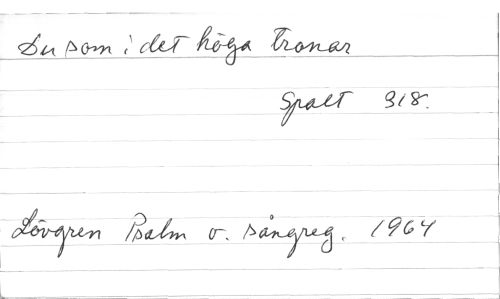 Du som i det höga tronar
Spalt 318.
Lövgren Psalm o. sångreg. 1964